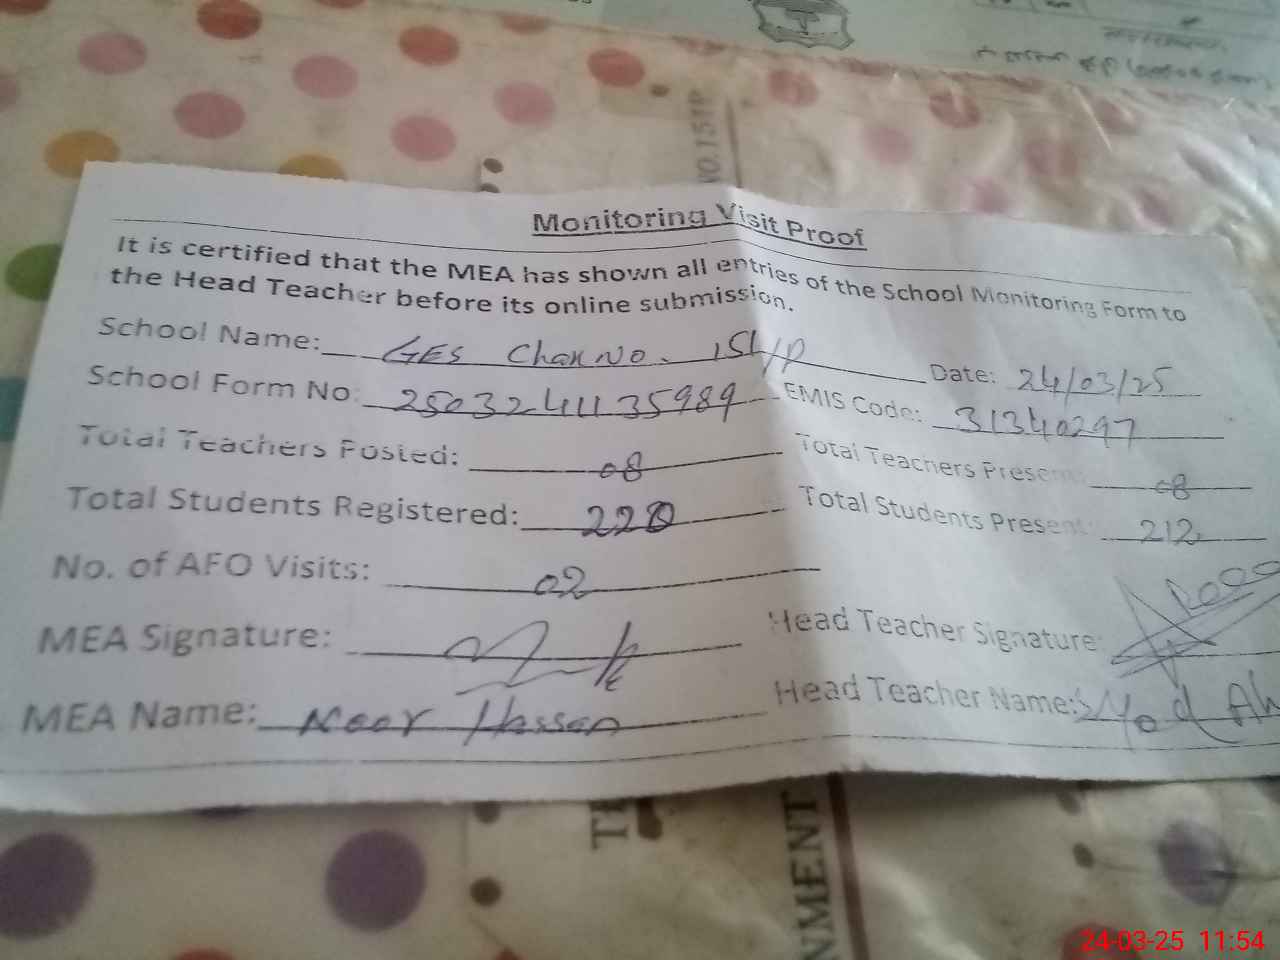 NO.151P
Monitoring Visit Proof
It is certified that the MEA has shown all entries of the School Monitoring Form to
the Head Teacher before its online submission.
School Name: GES Chak No. 151/P Date: 24/03/25
School Form No: 25032441135989 EMIS Code: 31340297
Total Teachers Posted: 08 Total Teachers Present: 08
Total Students Registered: 220 Total Students Present: 212
No. of AFO Visits: 02
MEA Signature: Head Teacher Signature:
MEA Name: Noor Hassan Head Teacher Name:
NMENT
24-03-25 11:54